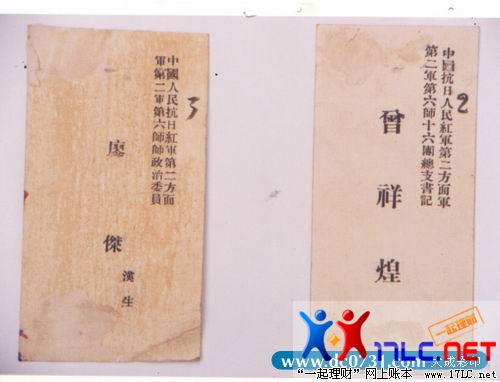 3
中國人民抗日紅軍第二方面
軍第二軍第六師師政治委員
廖傑
漢生
2
中國抗日人民紅軍第二方面軍
第二軍第六師十六團總支書記
曾祥煌
一起理财
17LC.NET
大成彩印
“一起理财”网上账本 www.17LC.net